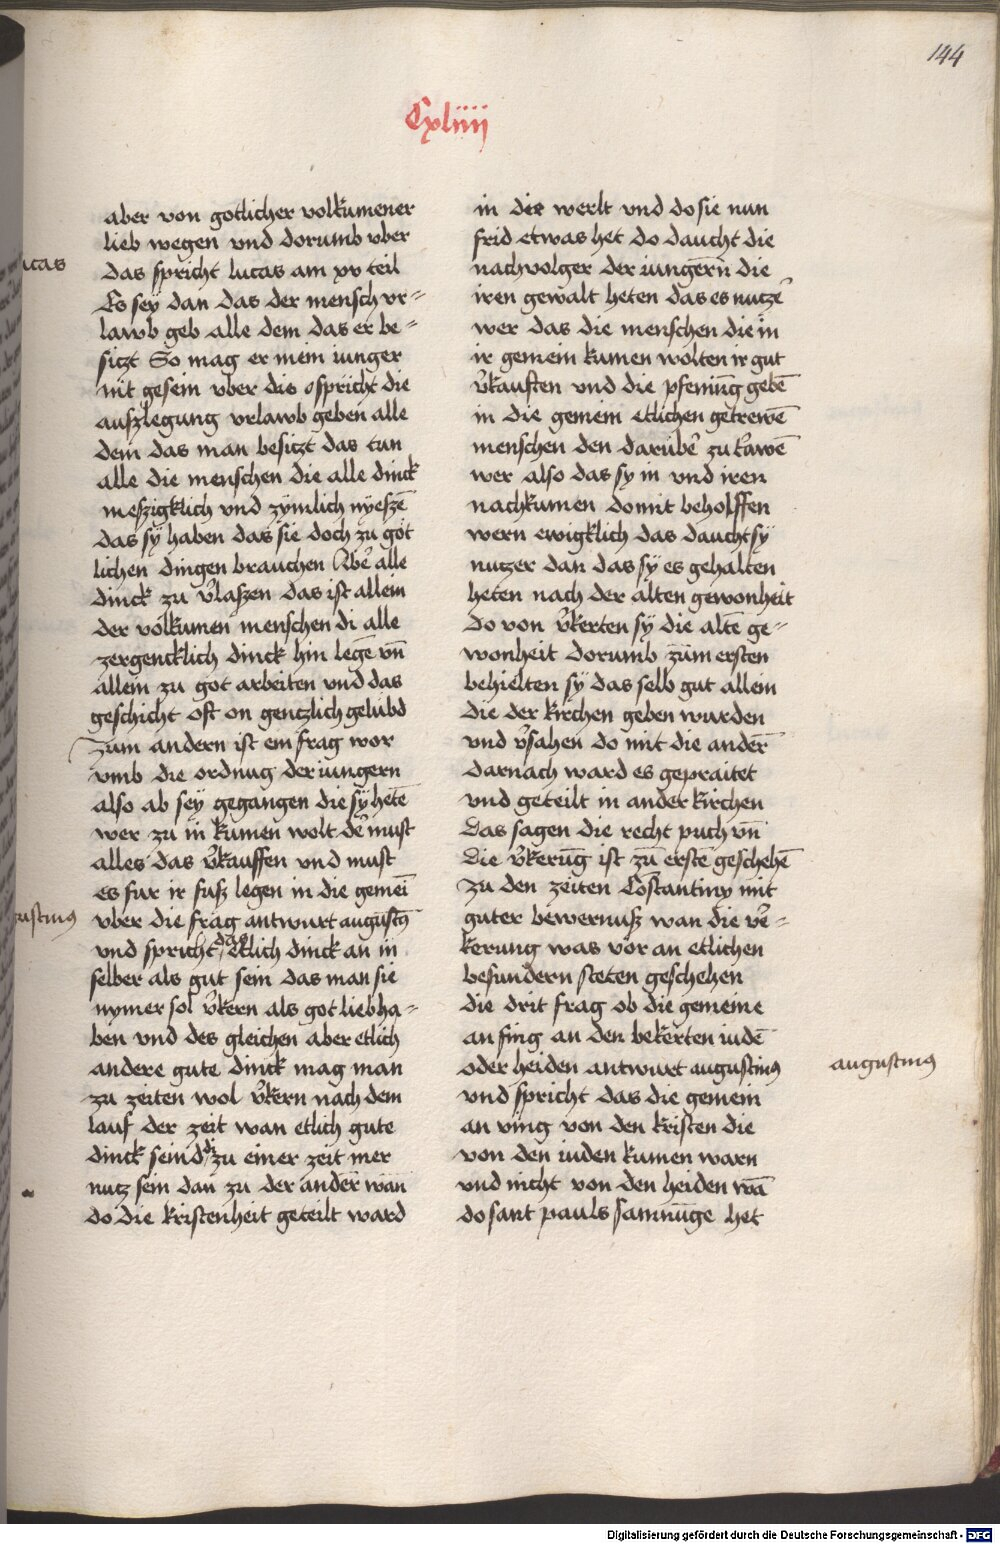 144
Cxliiij
aber von gotlicher volkumener
lieb wegen vnd dorumb vber
das spricht lucas am xv teil
Es seÿ dan das der mensch vr=
lawb geb alle dem das er be=
sitzt So mag er mein iunger
nit gesein vber die spricht die
auszlegung vrlawb geben alle
dem das man besitzt das tun
alle die menschen die alle dinck
meszigklich vnd zÿmlich nÿeszē
das sÿ haben das sie doch zu göt
lichen dingen brauchen Abe᷑ alle
dinck zu v᷑laszen das ist allein
der volkumen menschen di alle
zergencklich dinck hin legē vn̄
allein zu got arbeiten vnd das
geschicht oft on gentzlich gelübd
Zum andern ist ein frag wor
vmb die ordnug der iungern
also ab seÿ gegangen die sÿ hetē
wer zu in kumen wolt de᷑ must
alles das v᷑kauffen vnd must
es fur ir fusz legen in die gemeī
vber die frag antwurt augustꝰ
vnd spricht das etlich dinck an in
selber als gut sein das man sie
nymer sol v᷑kern als got liebha=
ben vnd des gleichen aber etlich
andere gute dinck mag man
zu zeiten wol v᷑kern nach dem
lauf der zeit wan etlich gute
dinck seind di zu einer zeit mer
nutz sein dan zu der ander wan
do die kristenheit geteilt ward
in die werlt vnd do sie nun
frid etwas het do daucht die
nachvolger der iungern̄ die
iren gewalt heten das es nutze᷑
wer das die menschen die in
ir gemein kumen wolten ir gut
v᷑kauften vnd die pfenīng gebē
in die gemein etlichen getrewē
menschen den darübe᷑ zu t᷑awē
wer also das sy in vnd iren
nachkumen domit beholffen
wern ewigklich das daucht sÿ
nutzer dan das sÿ es gehalten
heten nach der alten gewonheit
do von v᷑kerten sÿ die altē ge=
wonheit dorumb zum ersten
behielten sÿ das selb gut allein
die der kirchen geben wurden
vnd v᷑sahen do mit die ander̄
darnach ward es gepraitet
vnd geteilt in ander kirchen
Das sagen die recht puch vn̄
die v᷑kerūg ist zū erstē geschehē
zu den zeiten Cōstantiny mit
guter bewernusz wan die ve᷑=
kerung was vor an etlichen
besundern steten geschehen
die drit frag ob die gemeine
an fing an den bekerten iudē
oder heiden antwurt augustinꝰ
augustinꝰ
vnd spricht das die gemein
an ving von den kristen die
von den iuden kumen warn
vnd nicht von den heiden wā
do sant pauls samnūge het
Digitalisierung gefördert durch die Deutsche Forschungsgemeinschaft - DFG